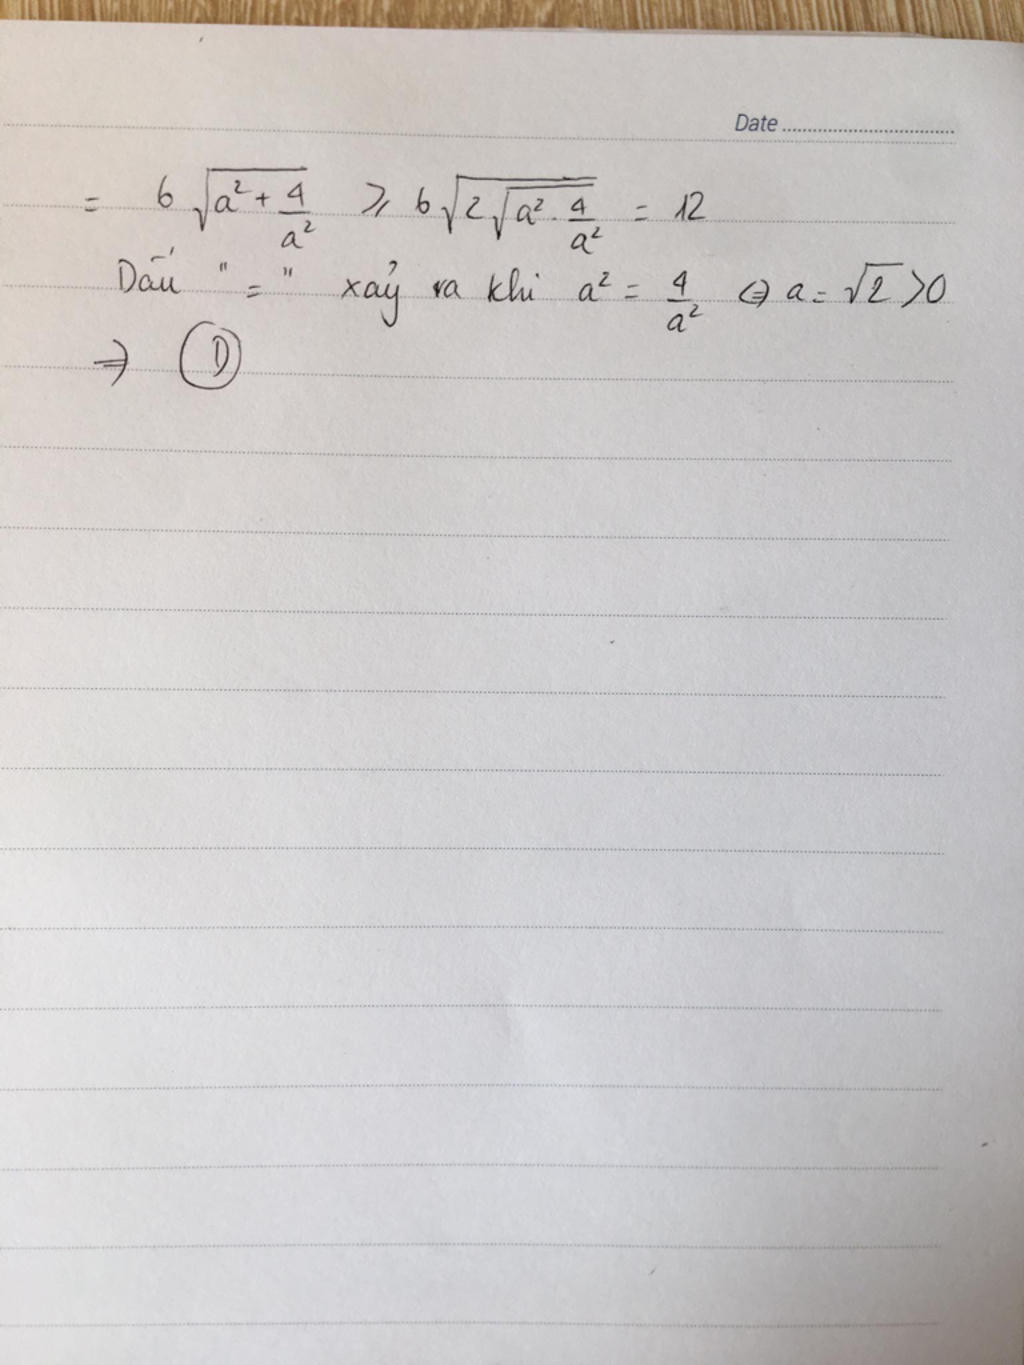 Date
= 6√(a² + 4/a²) ⩾ 6√(2√(a² . 4/a²)) = 12
Dấu " = " xảy ra khi a² = 4/a² ⇔ a = √2 > 0
⇒ D